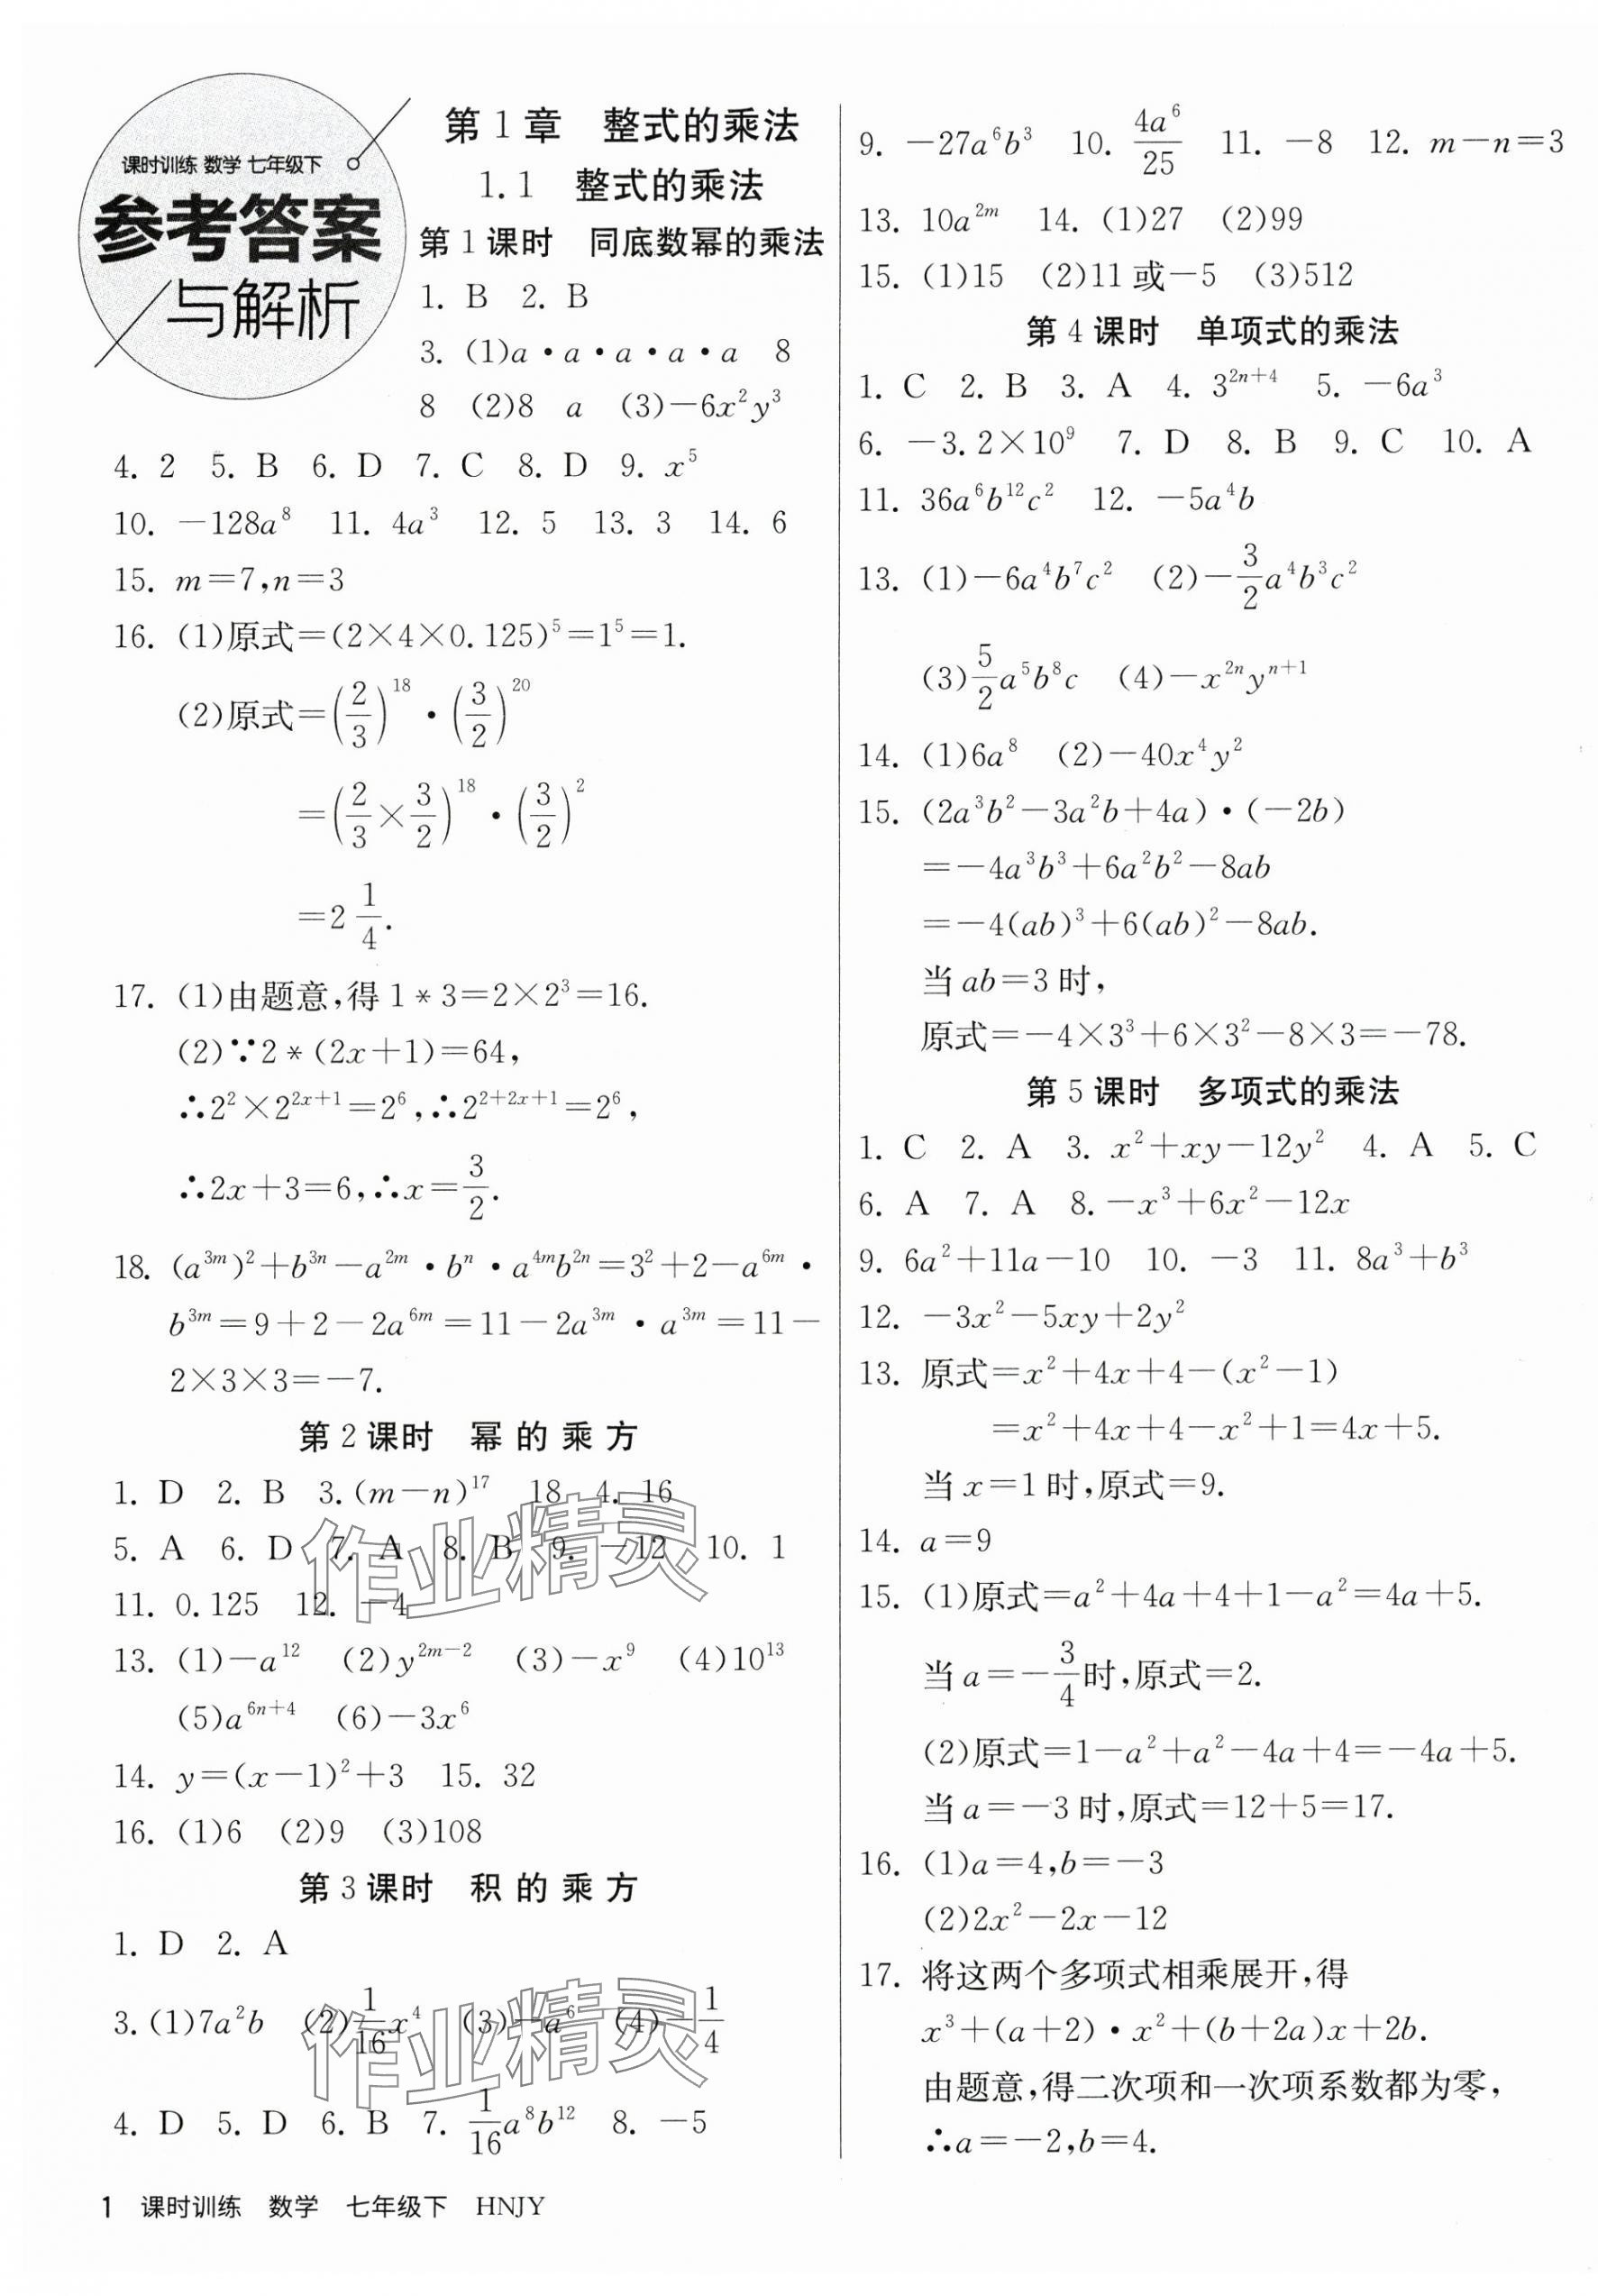 课时训练 数学 七年级下
参考答案
与解析
第1章 整式的乘法
1.1 整式的乘法
第1课时 同底数幂的乘法
1. B 2. B
3. (1)a·a·a·a·a 8
8 (2)8 a (3)−6x²y³
4. 2 5. B 6. D 7. C 8. D 9. x⁵
10. −128a⁸ 11. 4a³ 12. 5 13. 3 14. 6
15. m=7,n=3
16. (1)原式=(2×4×0.125)⁵=1⁵=1.
(2)原式=(2/3)¹⁸·(3/2)²⁰
=(2/3×3/2)¹⁸·(3/2)²
=2 1/4.
17. (1)由题意,得1*3=2×2³=16.
(2)∵2*(2x+1)=64,
∴2²×2^{2x+1}=2⁶,∴2^{2+2x+1}=2⁶,
∴2x+3=6,∴x=3/2.
18. (a^{3m})²+b^{3n}−a^{2m}·bⁿ·a^{4m}b^{2n}=3²+2−a^{6m}·
b^{3m}=9+2−2a^{6m}=11−2a^{3m}·a^{3m}=11−
2×3×3=−7.
第2课时 幂的乘方
1. D 2. B 3. (m−n)¹⁷ 18 4. 16
5. A 6. D 7. A 8. B 9. −12 10. 1
11. 0.125 12. −4
13. (1)−a¹² (2)y^{2m−2} (3)−x⁹ (4)10¹³
(5)a^{6n+4} (6)−3x⁶
14. y=(x−1)²+3 15. 32
16. (1)6 (2)9 (3)108
第3课时 积的乘方
1. D 2. A
3. (1)7a²b (2)1/16x⁴ (3)−a⁶ (4)−1/4
4. D 5. D 6. B 7. 1/16a⁸b¹² 8. −5
9. −27a⁶b³ 10. 4a⁶/25 11. −8 12. m−n=3
13. 10a^{2m} 14. (1)27 (2)99
15. (1)15 (2)11或−5 (3)512
第4课时 单项式的乘法
1. C 2. B 3. A 4. 3^{2n+4} 5. −6a³
6. −3.2×10⁹ 7. D 8. B 9. C 10. A
11. 36a⁶b¹²c² 12. −5a⁴b
13. (1)−6a⁴b⁷c² (2)−3/2a⁴b³c²
(3)5/2a⁵b⁸c (4)−x^{2n}y^{n+1}
14. (1)6a⁸ (2)−40x⁴y²
15. (2a³b²−3a²b+4a)·(−2b)
=−4a³b³+6a²b²−8ab
=−4(ab)³+6(ab)²−8ab.
当ab=3时,
原式=−4×3³+6×3²−8×3=−78.
第5课时 多项式的乘法
1. C 2. A 3. x²+xy−12y² 4. A 5. C
6. A 7. A 8. −x³+6x²−12x
9. 6a²+11a−10 10. −3 11. 8a³+b³
12. −3x²−5xy+2y²
13. 原式=x²+4x+4−(x²−1)
=x²+4x+4−x²+1=4x+5.
当x=1时,原式=9.
14. a=9
15. (1)原式=a²+4a+4+1−a²=4a+5.
当a=−3/4时,原式=2.
(2)原式=1−a²+a²−4a+4=−4a+5.
当a=−3时,原式=12+5=17.
16. (1)a=4,b=−3
(2)2x²−2x−12
17. 将这两个多项式相乘展开,得
x³+(a+2)·x²+(b+2a)x+2b.
由题意,得二次项和一次项系数都为零,
∴a=−2,b=4.
作业精灵
作业精灵
1 课时训练 数学 七年级下 HNJY